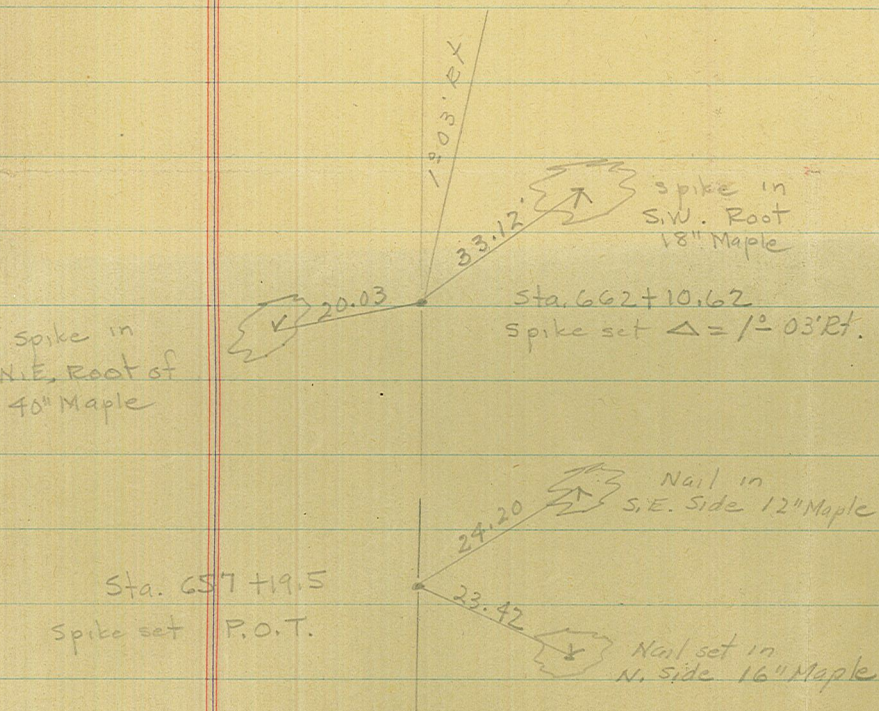 1° 03' Rt
33.12'
Spike in
S.W. Root
18" Maple
20.03
Sta. 662+10.62
Spike set Δ = 1° 03' Rt.
Spike in
N.E. Root of
40" Maple
Nail in
S.E. Side 12" Maple
24.20
Sta. 657+19.5
Spike set P.O.T.
23.42
Nail set in
N. Side 16" Maple